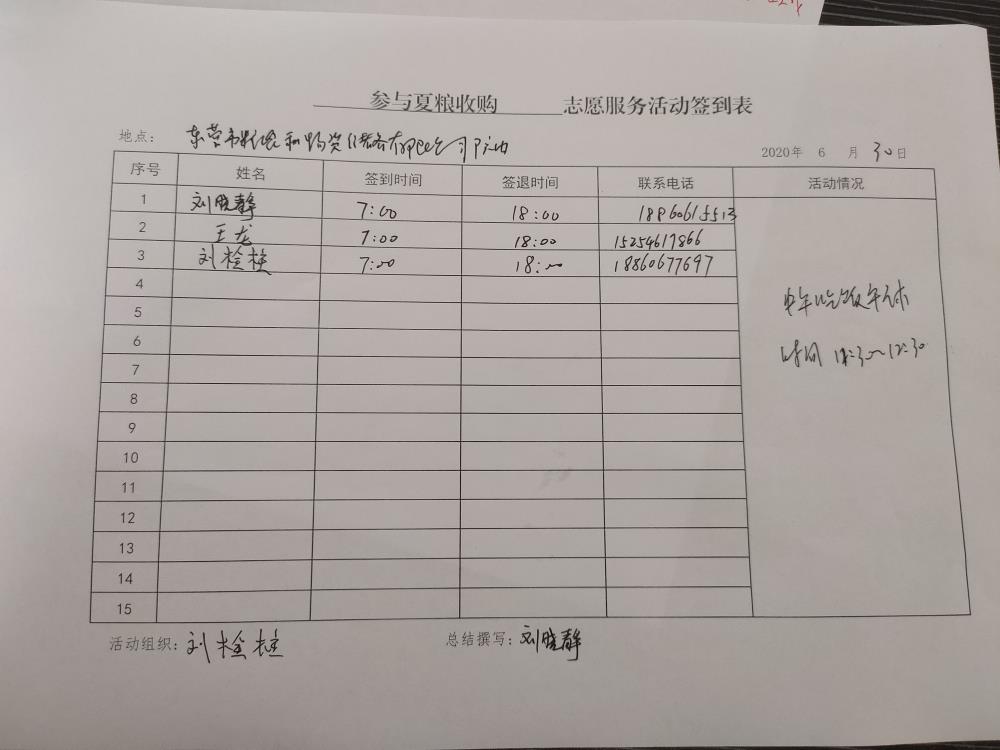 参与夏粮收购 志愿服务活动签到表
地点: 东营市粮食和物资储备有限公司
2020年 6 月 30日
序号 姓名 签到时间 签退时间 联系电话 活动情况
1 刘晓静 7:00 18:00 18860615513
2 王龙 7:00 18:00 15254617866
3 刘栓柱 7:00 18:00 18860677697
4
5
时间 11:30~12:30
6
7
8
9
10
11
12
13
14
15
活动组织: 刘栓柱 总结撰写: 刘晓静